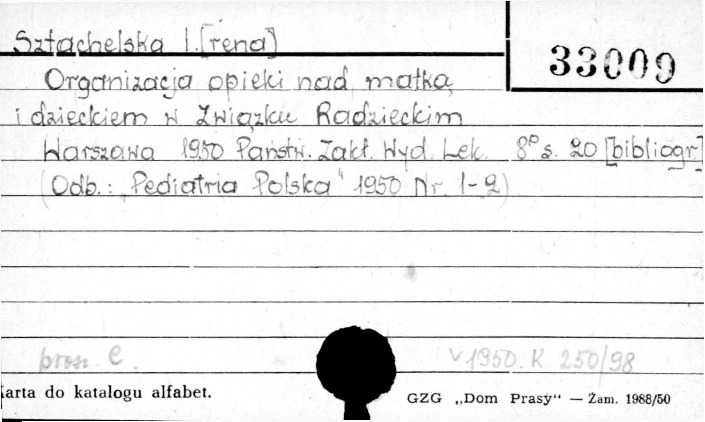 Sztachelska I.[rena]
33009
Organizacja opieki nad matką
i dzieckiem w Związku Radzieckim
Warszawa 1950 Państw. Zakł. Wyd. Lek. 8° s. 20 [bibliogr.]
(Odb.: „Pediatria Polska" 1950 Nr. 1-2)
brosz. e.
V 1950. K. 250/98
karta do katalogu alfabet.
GZG „Dom Prasy" — Zam. 1988/50